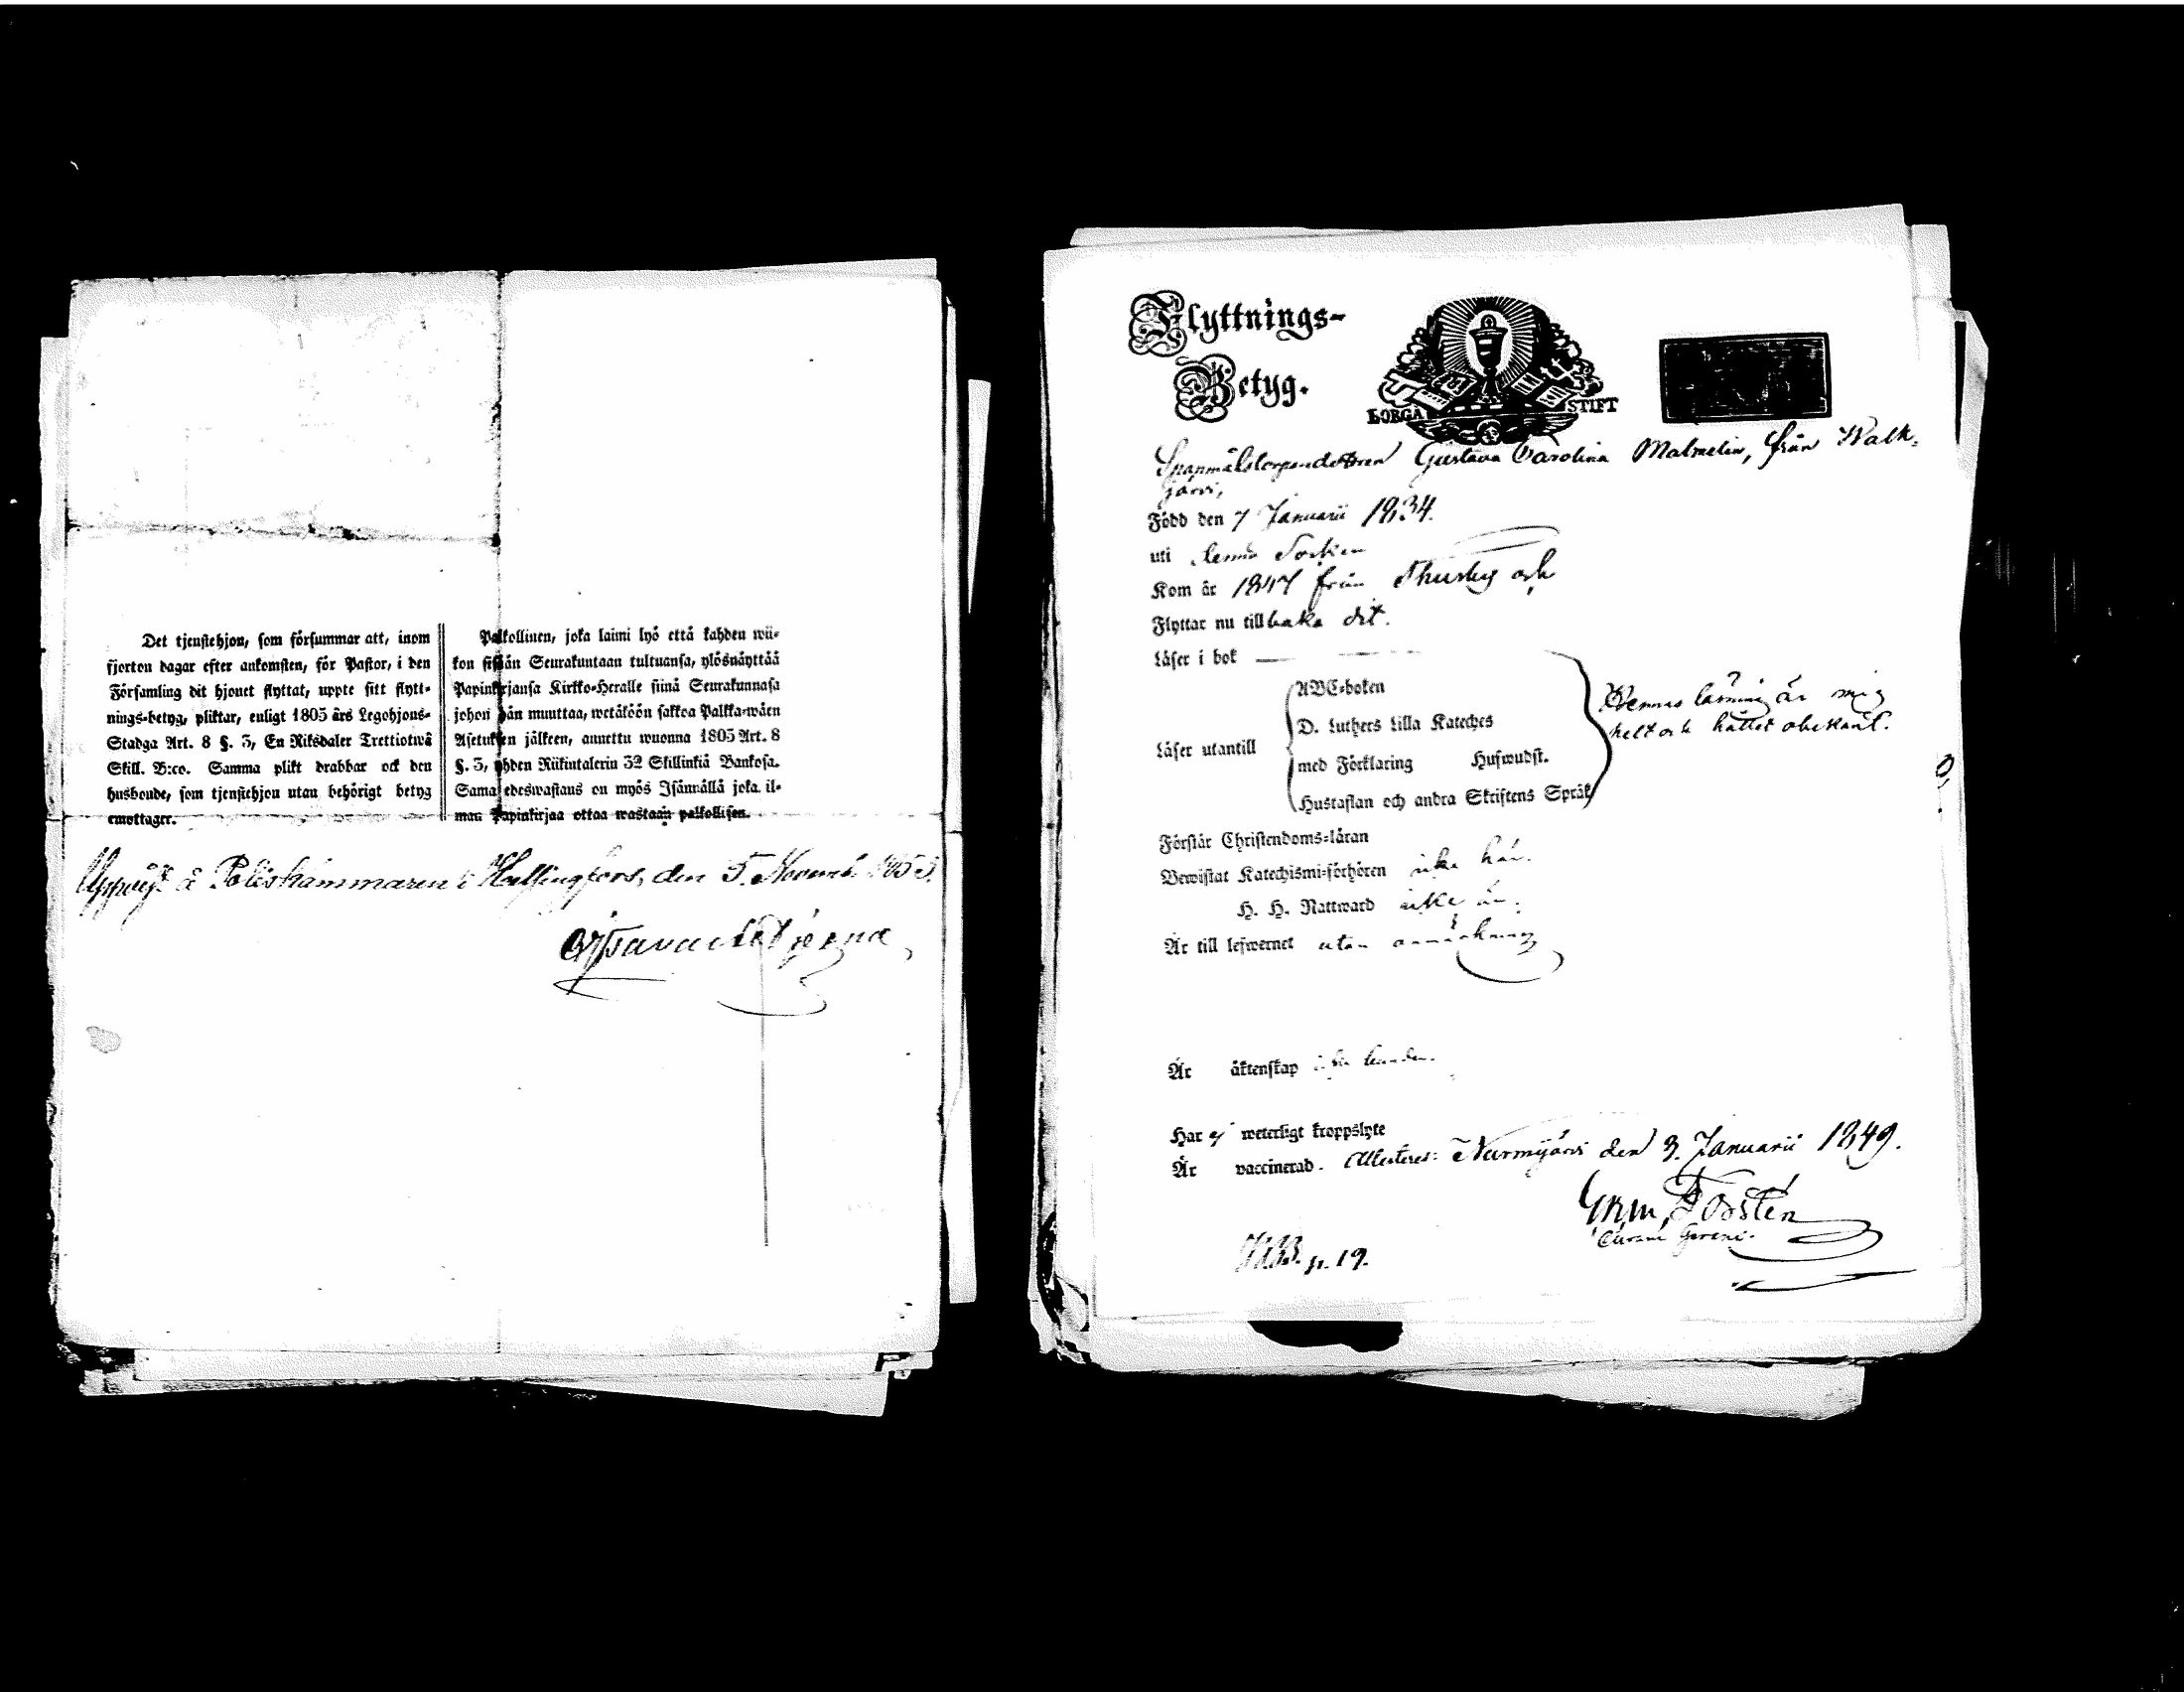 Det tjenstehjon, som försummar att, inom
fjorton dagar efter ankomsten, för Pastor, i den
Församling dit hjonet flyttat, uppte sitt flytt-
nings-betyg, pliktar, enligt 1805 års Legohjons-
Stadga Art. 8 §. 3, En Riksdaler Trettiotwå
Skill. B:co. Samma plikt drabbar ock den
husbonde, som tjenstehjon utan behörigt betyg
emottager.
Palkollinen, joka laimi lyö että kahden wii-
kon sisään Seurakuntaan tultuansa, ylösnäyttää
Papinkirjansa Kirkko-Heralle siinä Seurakunnasa
johon hän muuttaa, wetäköön sakkoa Palkka-wäen
Asetuksen jälkeen, annettu wuonna 1805 Art. 8
§. 3, yhden Riikintalerin 32 Skillinkiä Bankosa.
Sama edeswastaus on myös Isännällä joka il-
man Papinkirjaa ottaa wastaan palkollisen.
å Poliskammaren i Helsingfors, den 5. Novemb.
Flyttnings-
Betyg.
BORGÅ STIFT
Gustava Carolina Malmelin, från Walk-
järvi,
Född den 7 Januarii 1834.
uti Socken
Kom år 1847 från Thusby och
Flyttar nu tillbaka dit.
Läser i bok
Läser utantill
ABC-boken
D. Luthers Lilla Kateches
med Förklaring Huswudst.
Hustaflan och andra Skriftens Språk
Hennes läsning är mig
helt och hållet obekant.
Förstår Christendoms-läran
Bewistat Katechismi-förhören icke här.
H. H. Nattward icke
Är till lefwernet utan anmärkning
Är äktenskap
Har ej weterligt kroppslyte
Är vaccinerad. Attesteras: Nurmijärvi den 3. Januarii 1849.
p. 19.